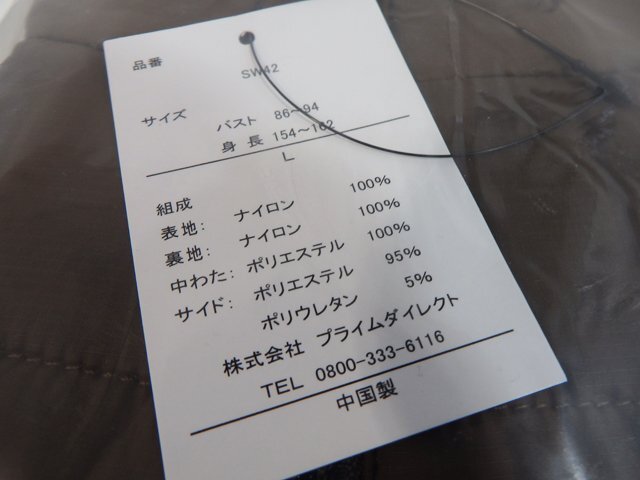 品番
SW42
サイズ バスト 86～94
身長 154～162
L
組成
表地: ナイロン 100%
裏地: ナイロン 100%
中わた: ポリエステル 100%
サイド: ポリエステル 95%
ポリウレタン 5%
株式会社 プライムダイレクト
TEL 0800-333-6116
中国製